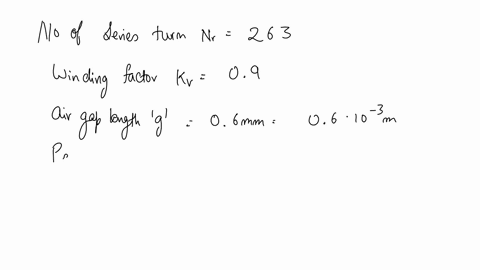 No of Series turn Nr = 263
Winding factor Kr = 0.9
Air gap length 'g' = 0.6mm = 0.6 · 10⁻³m